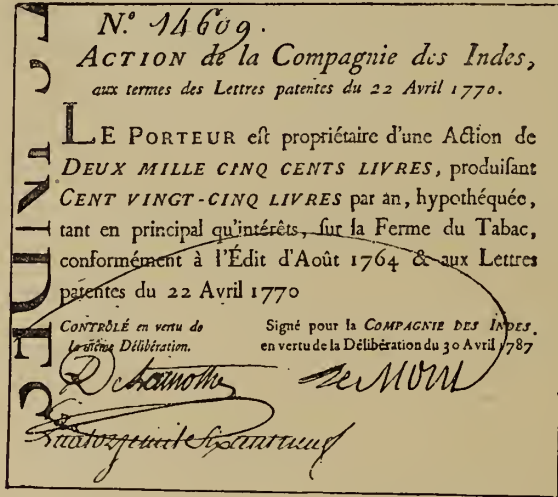 N.º 14609.
ACTION de la Compagnie des Indes,
aux termes des Lettres patentes du 22 Avril 1770.
LE PORTEUR eſt propriétaire d'une Action de
DEUX MILLE CINQ CENTS LIVRES, produiſant
CENT VINGT-CINQ LIVRES par an, hypothéquée,
tant en principal qu'intérêts, ſur la Ferme du Tabac,
conformément à l'Édit d'Août 1764 & aux Lettres
patentes du 22 Avril 1770
CONTRÔLÉ en vertu de
la même Délibération.
Signé pour la COMPAGNIE DES INDES.
en vertu de la Délibération du 30 Avril 1787
de Mory
quatorzemil Sixcentneuf
INDES